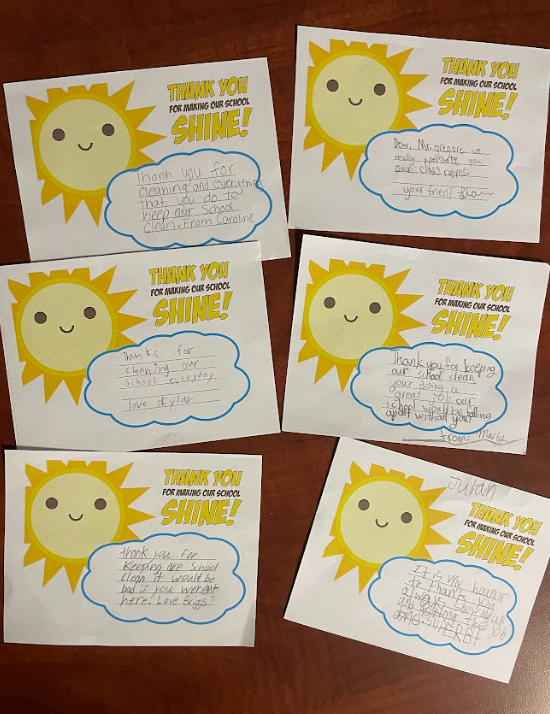 THANK YOU
FOR MAKING OUR SCHOOL
SHINE!
Thank you for
cleaning and everything
that you do to
keep our School
clean. from Caroline
THANK YOU
FOR MAKING OUR SCHOOL
SHINE!
Dear, Mr. we
really you
your friend
THANK YOU
FOR MAKING OUR SCHOOL
SHINE!
Thanks for
cleaning our
School everyday
love skylar
THANK YOU
FOR MAKING OUR SCHOOL
SHINE!
Thank you for keeping
our school clean
your doing a
great job our
school would be falling
apart without you!
from:
THANK YOU
FOR MAKING OUR SCHOOL
SHINE!
thank you for
Keeping are School
clean it would be
bad if you werent
here! Love Briggs
Julian
THANK YOU
FOR MAKING OUR SCHOOL
SHINE!
It is My honor
to thank you
always
and the job
done. SUPERB!